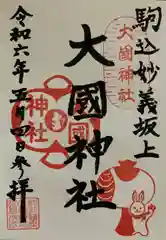 駒込妙義坂上
大國神社
大國神社
神社
令和六年五月四日参拝